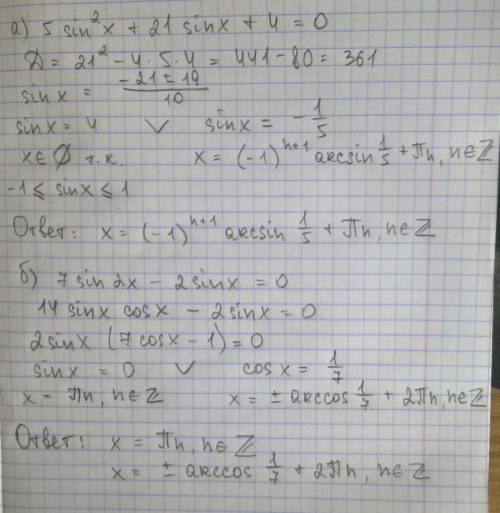 а) 5 sin²x + 21 sinx + 4 = 0
D = 21² - 4 · 5 · 4 = 441 - 80 = 361
sinx = (-21 ± 19)/10
sinx = 4 ∨ sinx = -1/5
x ∈ ∅ т.к. x = (-1)ⁿ⁺¹ arcsin 1/5 + πn, n∈ℤ
-1 ⩽ sinx ⩽ 1
Ответ: x = (-1)ⁿ⁺¹ arcsin 1/5 + πn, n∈ℤ
б) 7 sin 2x - 2 sinx = 0
14 sinx cosx - 2 sinx = 0
2 sinx (7 cosx - 1) = 0
sinx = 0 ∨ cosx = 1/7
x = πn, n∈ℤ x = ± arccos 1/7 + 2πn, n∈ℤ
Ответ: x = πn, n∈ℤ
x = ± arccos 1/7 + 2πn, n∈ℤ